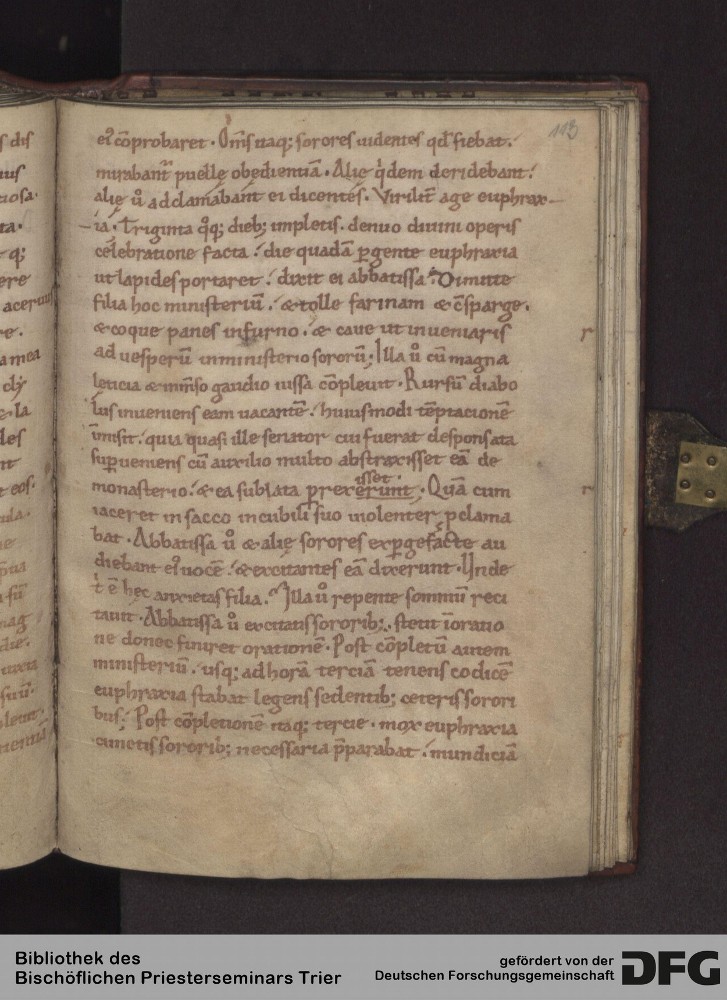 113
ei' cōprobaret . Om̄s itaq; sorores uidentes qđ fiebat .
mirabant᷑ puellę obędientiā . Alię q̇dem deridebant .
alię ů adclamabant ei dicentes . Virilit̄ age euphrax-
-ia . Triginta q̇q; dieb; impletis . denuo diuini operis
celebratione facta . die quadā ꝑgente euphraxia
ut lapides portaret . dixit ei abbatissa . Dimitte
filia hoc ministeriū . & tolle farinam & c̄sparge .
& coque panes in furno . & caue ut inueniaris
ad uesperū in ministerio sororū . Illa ů cū magna
leticia & inm̄so gaudio iussa cōpleuit . Rursū diabo
lus inueniens eam uacantē . huiusmodi tēptacionē
īmisit . quia quasi ille senator cui fuerat desponsata
suꝑueniens cū auxilio multo abstraxisset eā de
monasterio . & ea sublata prexerunt . Quā cum
isset .
iaceret in sacco in cubili suo uiolenter ꝓclama
bat . Abbatissa ů & alię sorores exꝑgefacte au
diebant ei' uocē . & excitantes eā dixerunt . Unde
t̄ ē hec anxietas filia . Illa ů repente somniū reci
tauit . Abbatissa ů excitatis sororib; . stetit ī oratio
ne donec finiret orationē . Post cōpletū autem
ministeriū . usq; ad horā terciā tenens codicē
euphraxia stabat legens sedentib; ceteris sorori
bus . Post cōpletionē itaq; tercie . mox euphraxia
cunctis sororib; necessaria p̄parabat . mundiciā
r
r
s dis
ta .
q;
ere
re .
a mea
& la
les
t eos .
die .
Bibliothek des
Bischöflichen Priesterseminars Trier
gefördert von der
Deutschen Forschungsgemeinschaft
DFG